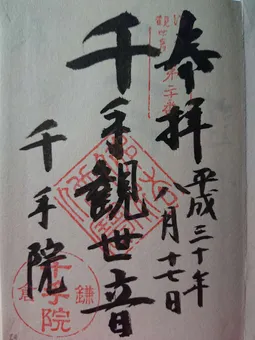 奉拝
平成三十年
八月十七日
千手観世音
千手院
鎌
倉
千手院